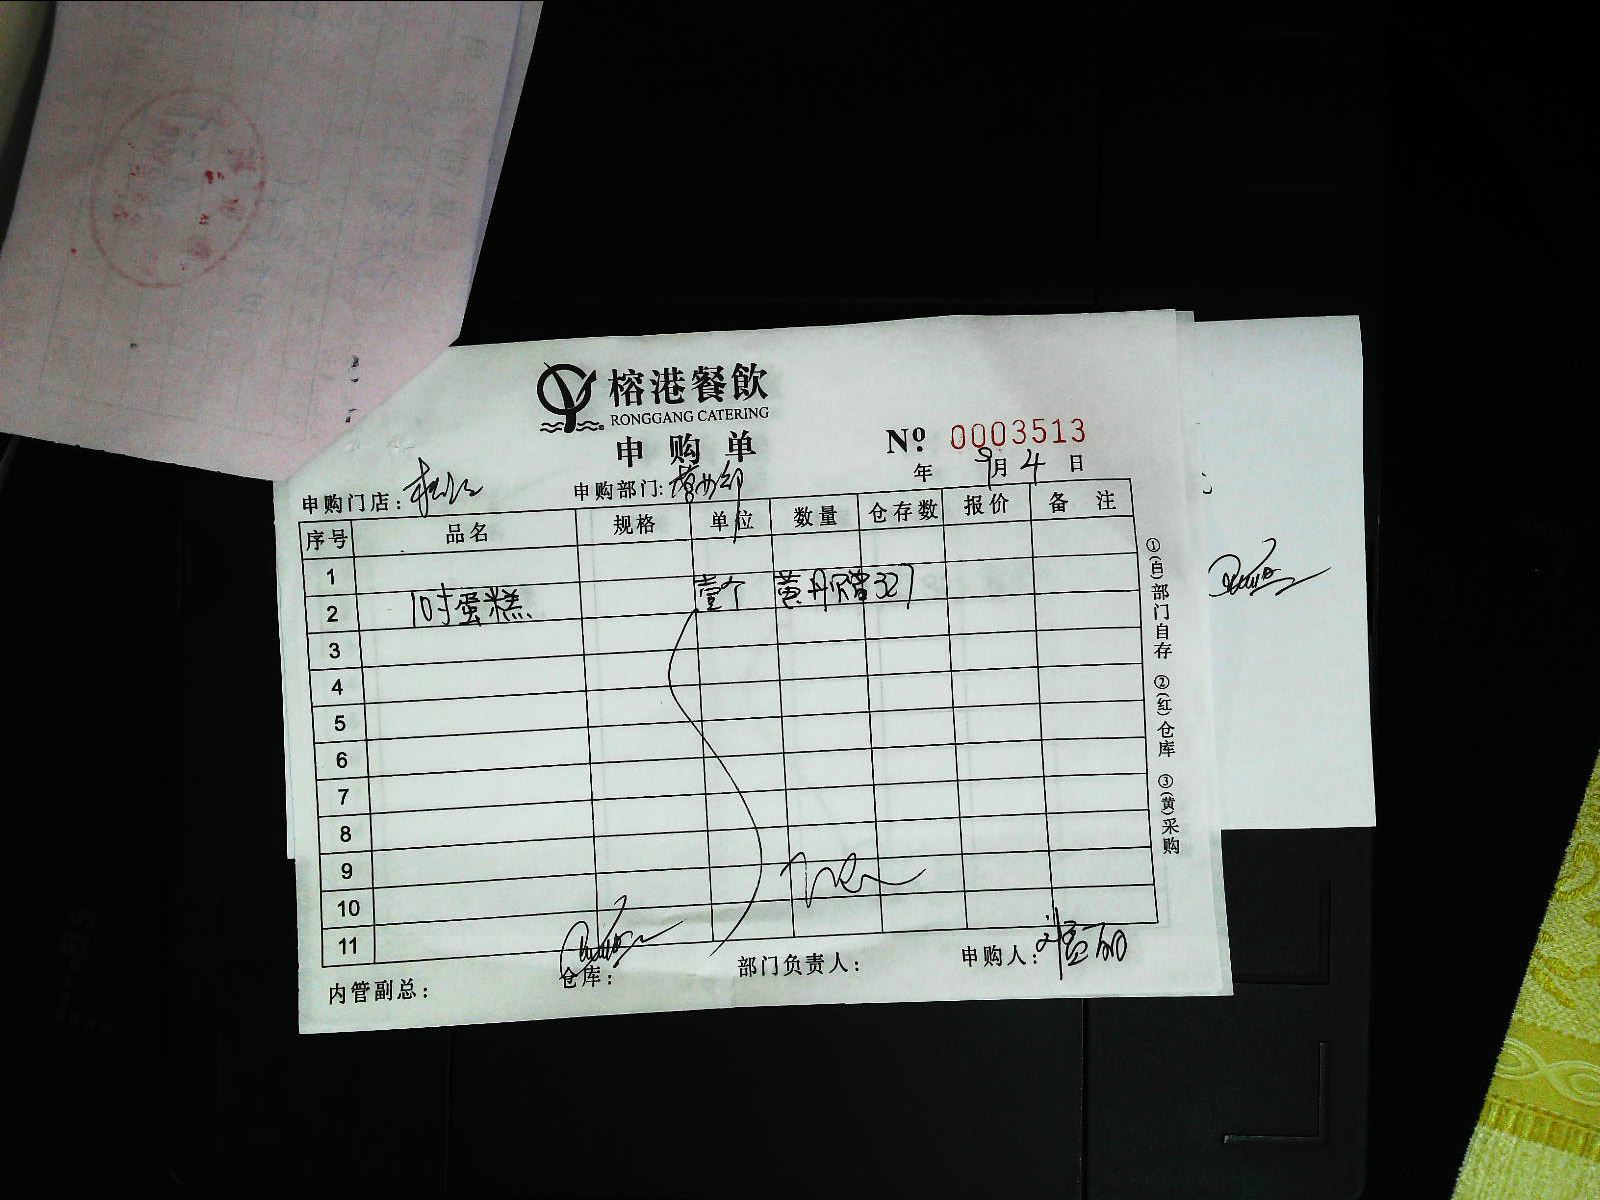 榕港餐飲
RONGGANG CATERING
申购单
№ 0003513
年 9月 4 日
申购门店: 申购部门: 营业部
序号 品名 规格 单位 数量 仓存数 报价 备注
1
2 10寸蛋糕 壹个 黄丹 327
3
4
5
6
7
8
9
10
11
内管副总: 仓库: 部门负责人: 申购人:
①(白)部门自存 ②(红)仓库 ③(黄)采购